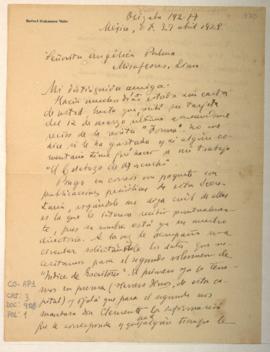 Rafael Heliodoro Valle
Orizaba 192-17
México, D.F. 27 abril 1928
Señorita Angélica Palma
Miraflores, Lima
Mi distinguida amiga:
Hacía muchos días estaba sin carta
de usted hasta que vino su tarjeta
del 12 de marzo último
recibo de la revista "Forma". No me
dice si le ha gustado y si algún co-
mentario tiene que hacer a mi trabajo
"El de Ayacucho".
Tengo en correos un paquete con
publicaciones periódicas de esta Secre-
taría, rogándole me diga cuál de ellas
es la que le interesa recibir puntualmen-
te, pues su nombre está en nuestro
directorio. A la vez le acompaño una
circular solicitándole los datos que ne-
cesitamos para el segundo volumen de
"Indice de Escritores". El primero ya lo tene-
mos en prensa (Herrero Hnos, de esta ca-
pital) y ojalá que para el segundo nos
mandara don Clemente la información
que le corresponda y que algún tiempo le
CO-AP1
CAJ: 3
DOC: 928
FOL: 1